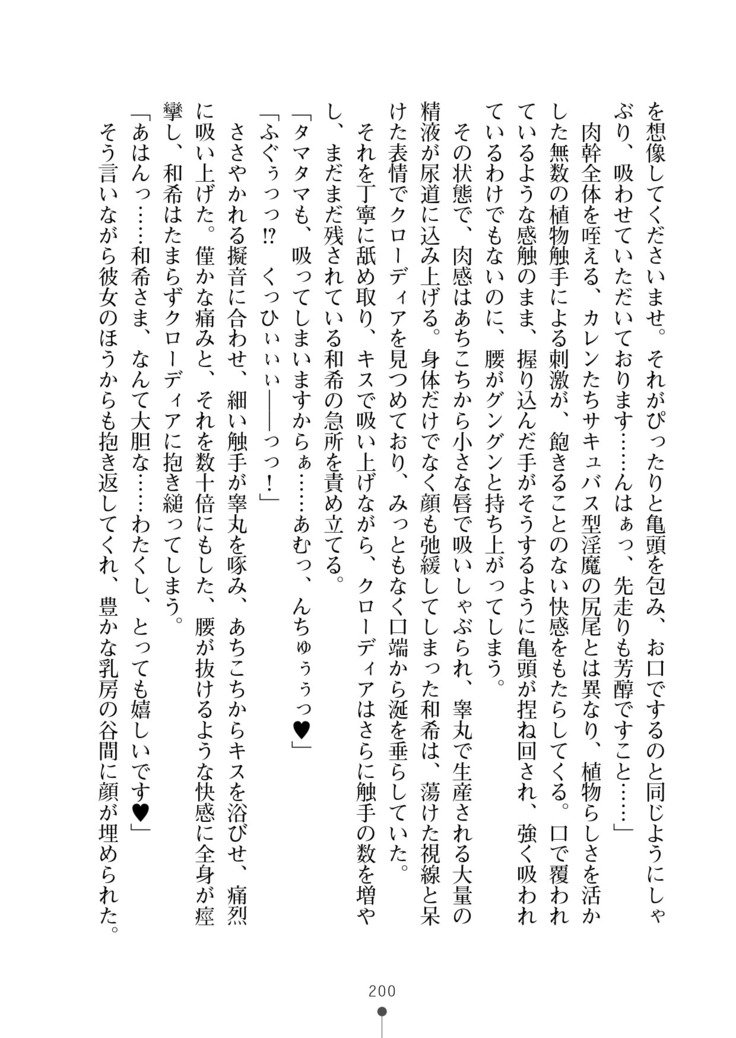 を想像してくださいませ。それがぴったりと亀頭を包み、お口でするのと同じようにしゃ
ぶり、吸わせていただいております……んはぁっ、先走りも芳醇ですこと……」
肉幹全体を咥える、カレンたちサキュバス型淫魔の尻尾とは異なり、植物らしさを活か
した無数の植物触手による刺激が、飽きることのない快感をもたらしてくる。口で覆われ
ているような感触のまま、握り込んだ手がそうするように亀頭が捏ね回され、強く吸われ
ているわけでもないのに、腰がグングンと持ち上がってしまう。
その状態で、肉感はあちこちから小さな唇で吸いしゃぶられ、睾丸で生産される大量の
精液が尿道に込み上げる。身体だけでなく顔も弛緩してしまった和希は、蕩けた視線と呆
けた表情でクローディアを見つめており、みっともなく口端から涎を垂らしていた。
それを丁寧に舐め取り、キスで吸い上げながら、クローディアはさらに触手の数を増や
し、まだまだ残されている和希の急所を責め立てる。
「タマタマも、吸ってしまいますからぁ……あむっ、んちゅぅぅっ♥」
「ふぐぅっっ!? くっひぃぃぃ――っっ！」
ささやかれる擬音に合わせ、細い触手が睾丸を啄み、あちこちからキスを浴びせ、痛烈
に吸い上げた。僅かな痛みと、それを数十倍にもした、腰が抜けるような快感に全身が痙
攣し、和希はたまらずクローディアに抱き縋ってしまう。
「あはんっ……和希さま、なんて大胆な……わたくし、とっても嬉しいです♥」
そう言いながら彼女のほうからも抱き返してくれ、豊かな乳房の谷間に顔が埋められた。
200